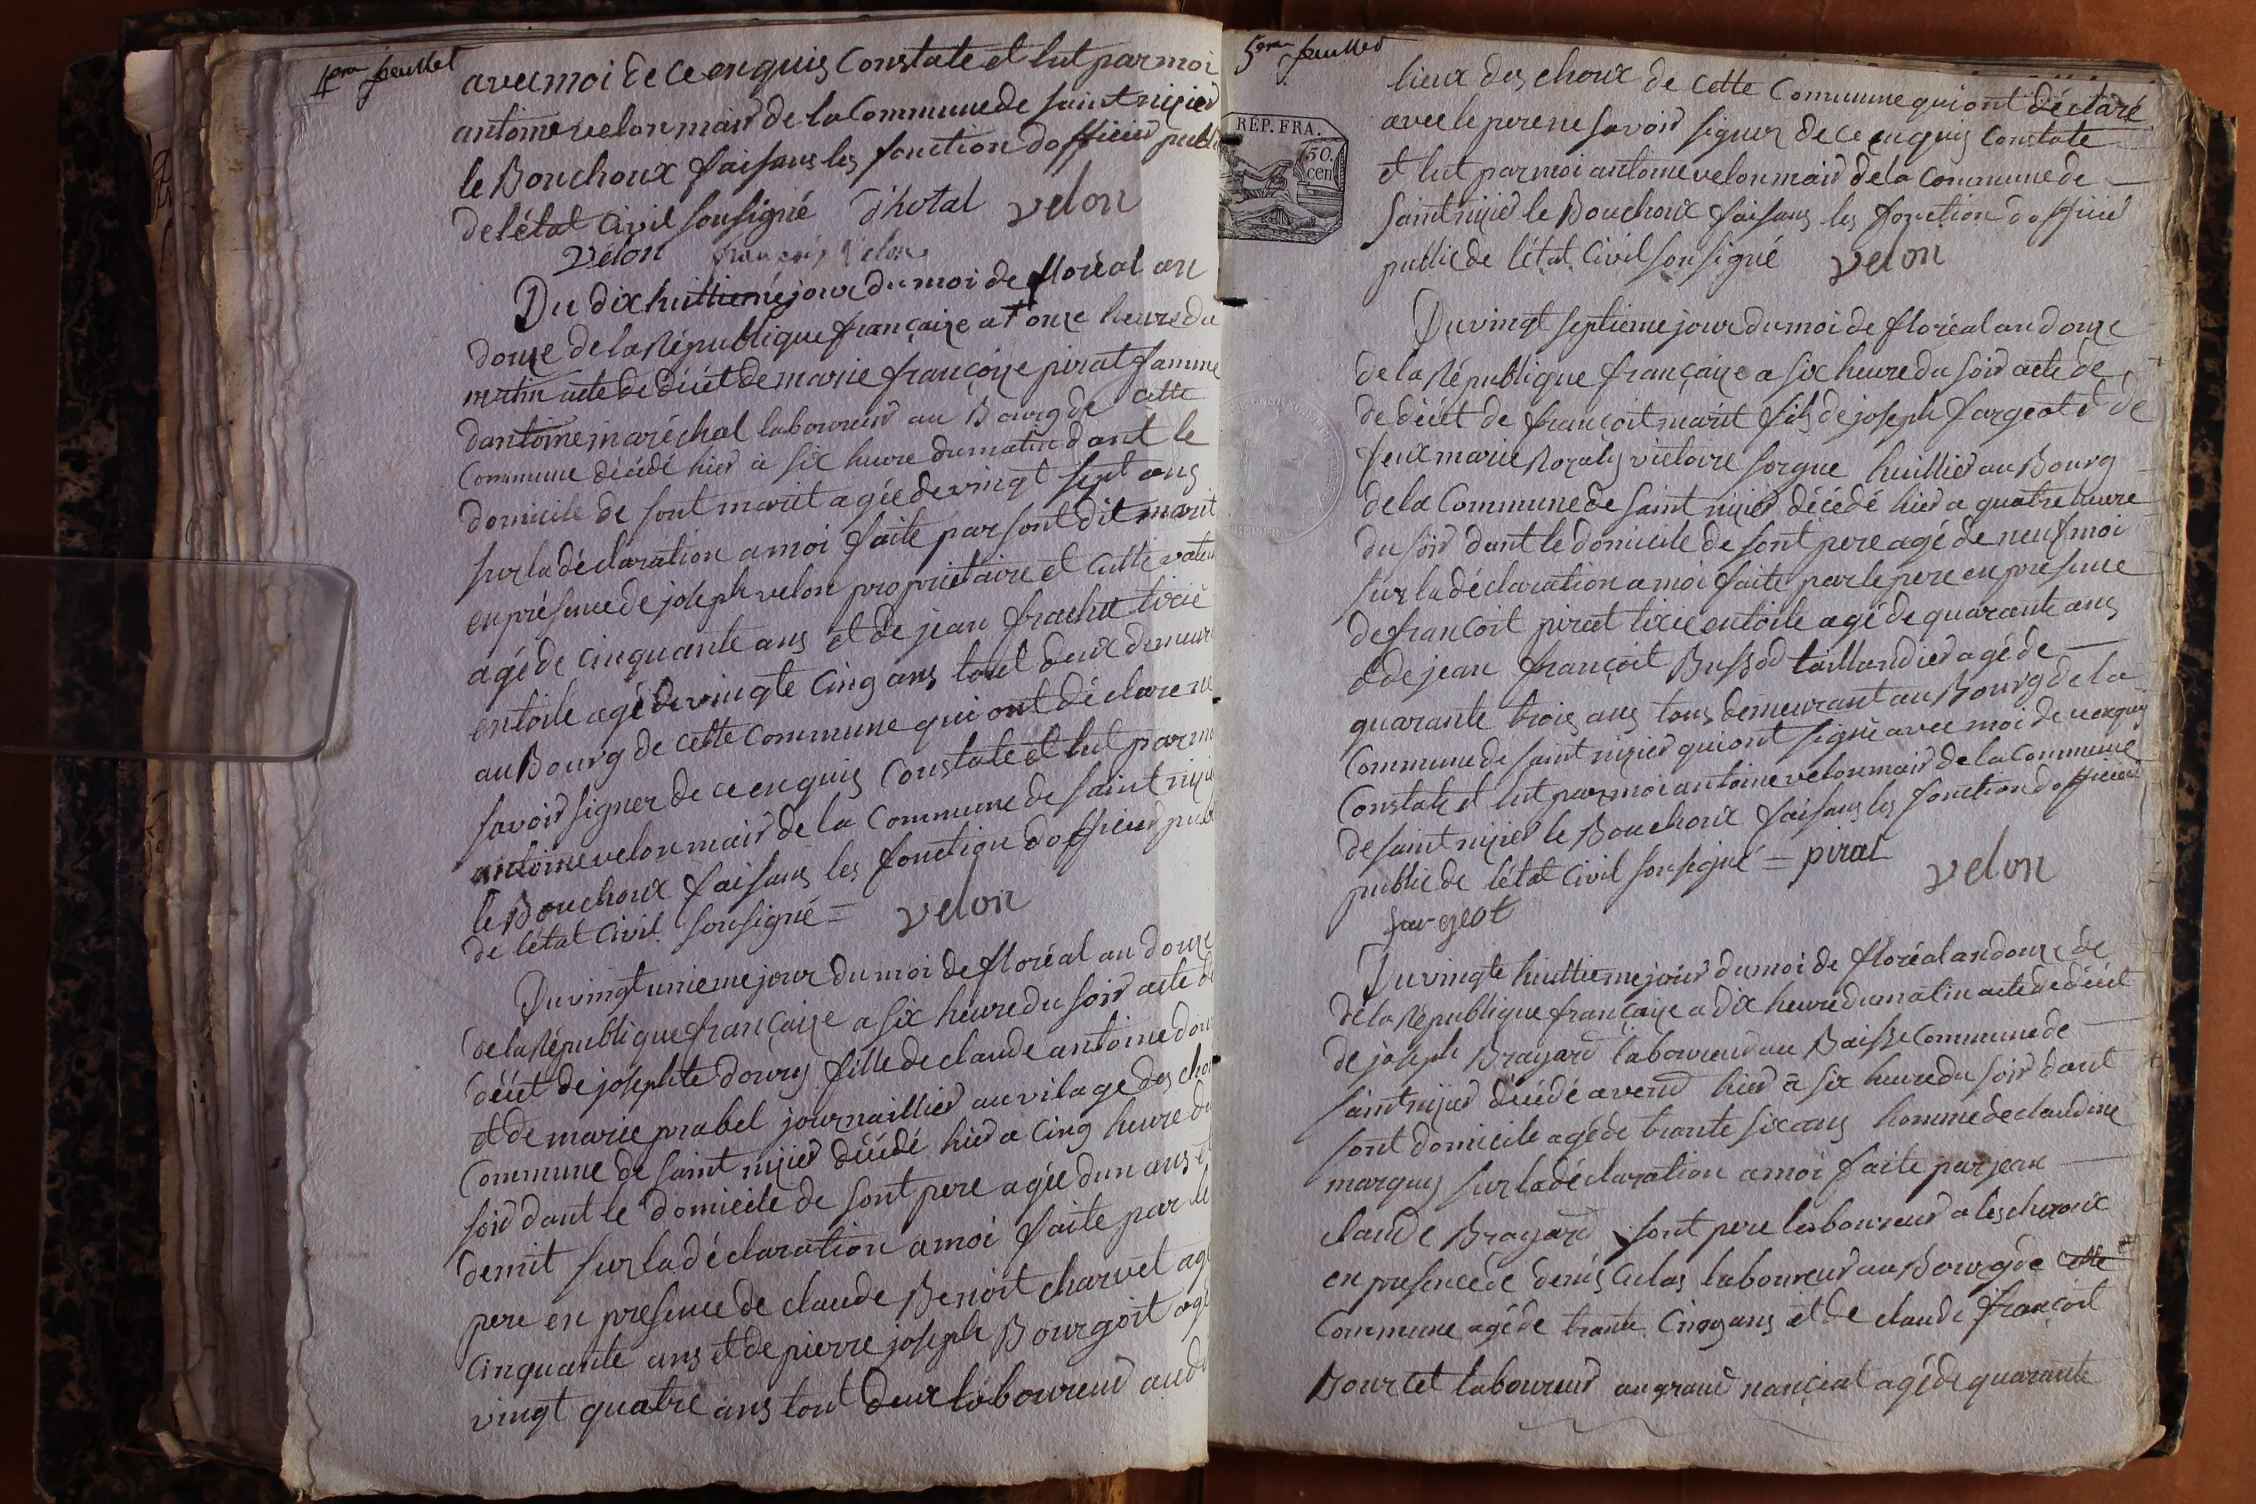 4eme feuillet
avec moi de ce enquis Constate et lut par moi
antoine velon mair de la Commune de saint nizier
le Bouchoux faisans les fonction dofficier publi
de létat Civil sousigné d'hotal velon
velon françois velon
Du dix huittieme jour du moi de floréal an
douze de la République françaize a onze heure du
matin acte de décét de marie françoize pirat famme
dantoine maréchal laboureur au Bourg de cette
Commune décédé hier à six heure du matin dant le
domicile de sont marit agée de vingt sept ans
sur la déclaration a moi faite par sont dit marit
en présence de joseph velon proprietaire et cultivateur
agé de cinquante ans et de jean frachet tixié
en toile agé de vingte cinq ans tout deux demeur
au Bourg de cette commune qui ont déclare ne
savoir signer de ce enquis Constate et lut par moi
antoine velon mair de la Commune de saint nizie
le Bouchoux faisans les fonction dofficier publ
de létat Civil sousigné = velon
Du vingt unieme jour du moi de floréal an douze
de la République françaize a six heure du soir acte de
décét de josephte doury fille de claude antoine dou
et de marie prabel journaillier au vilage des chou
Commune de saint nizier décédé hier a cinq heure du
soir dant le domicile de sont pere agée dun ans et
demit sur la déclaration a moi faite par le
pere en presence de claude Benoit charvet agé
cinquante ans et de pierre joseph Bourgoit agé
vingt quatre ans tout deux laboureur audi
5eme feuillet
RÉP. FRA.
50.
cen
lieux des choux de cette Commune qui ont déclaré
avec le pere ne savoir signer de ce enquis Constate
et lut par moi antoine velon mair de la Commune de
saint nizier le Bouchoux faisans les fonction dofficier
public de létat Civil sousigné velon
Du vingt septieme jour du moi de floréal an douze
de la République françaize a six heure du soir acte de
de décét de françoit marit fils de joseph fargeot et de
feux marie Rozaly victoire sorgue huillier au Bourg
de la Commune de saint nizier décédé hier a quatre heure
du soir dant le domicile de sont pere agé de neuf moi
sur la déclaration a moi faite par le pere en présence
de françoit pirat tixié en toile agé de quarante ans
et de jean françoit Bussod taillandier agé de
quarante trois ans tous demeurant au Bourg de la
Commune de saint nizier qui ont signé avec moi de ce enquis
Constate et lut par moi antoine velon mair de la Commune
de saint nizier le Bouchoux faisans les fonction dofficier
public de létat Civil sousigné = pirat velon
fargeot
Du vingte huittieme jour du moi de floréal an douze de
de la République françaize a dix heure du matin acte de décét
de joseph Brayard laboureur au Baisse Commune de
saint nizier décédé avend hier à six heure du soir dant
sont domicile agé de trante six ans homme de claudine
marquis sur la déclaration a moi faite par jean
claude Brayard sont pere laboureur a lescheroux
en presence de denis Culas laboureur au Bourg de cette
Commune agé de trante Cinq ans et de claude françoit
Bourcet laboureur au grand nanciat agé de quarante